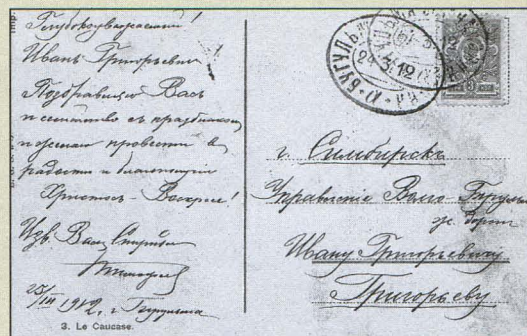 Глубокоуважаемый
Иванъ Григорьевичъ
Поздравляю Васъ
и семейство съ праздникомъ
и желаю провести въ
радости и благополучiи
Христосъ Воскресе!
Ув. Васъ
25/III 1912, г. Бугульма
3. Le Caucase.
БУГУЛЬМ
3 19
3
г. Симбирскъ
Управленiе Волго Бугульм
ж. дороги
Ивану Григорьевичу
Григорьеву